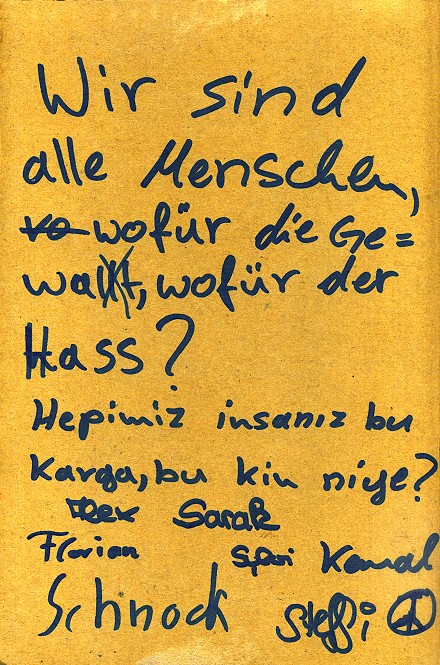 Wir sind
alle Menschen,
wofür die Ge=
walt, wofür der
Hass?
Hepimiz insanız bu
Karga, bu kin niye?
Sarah
Florian Kamal
Schnock Steffi